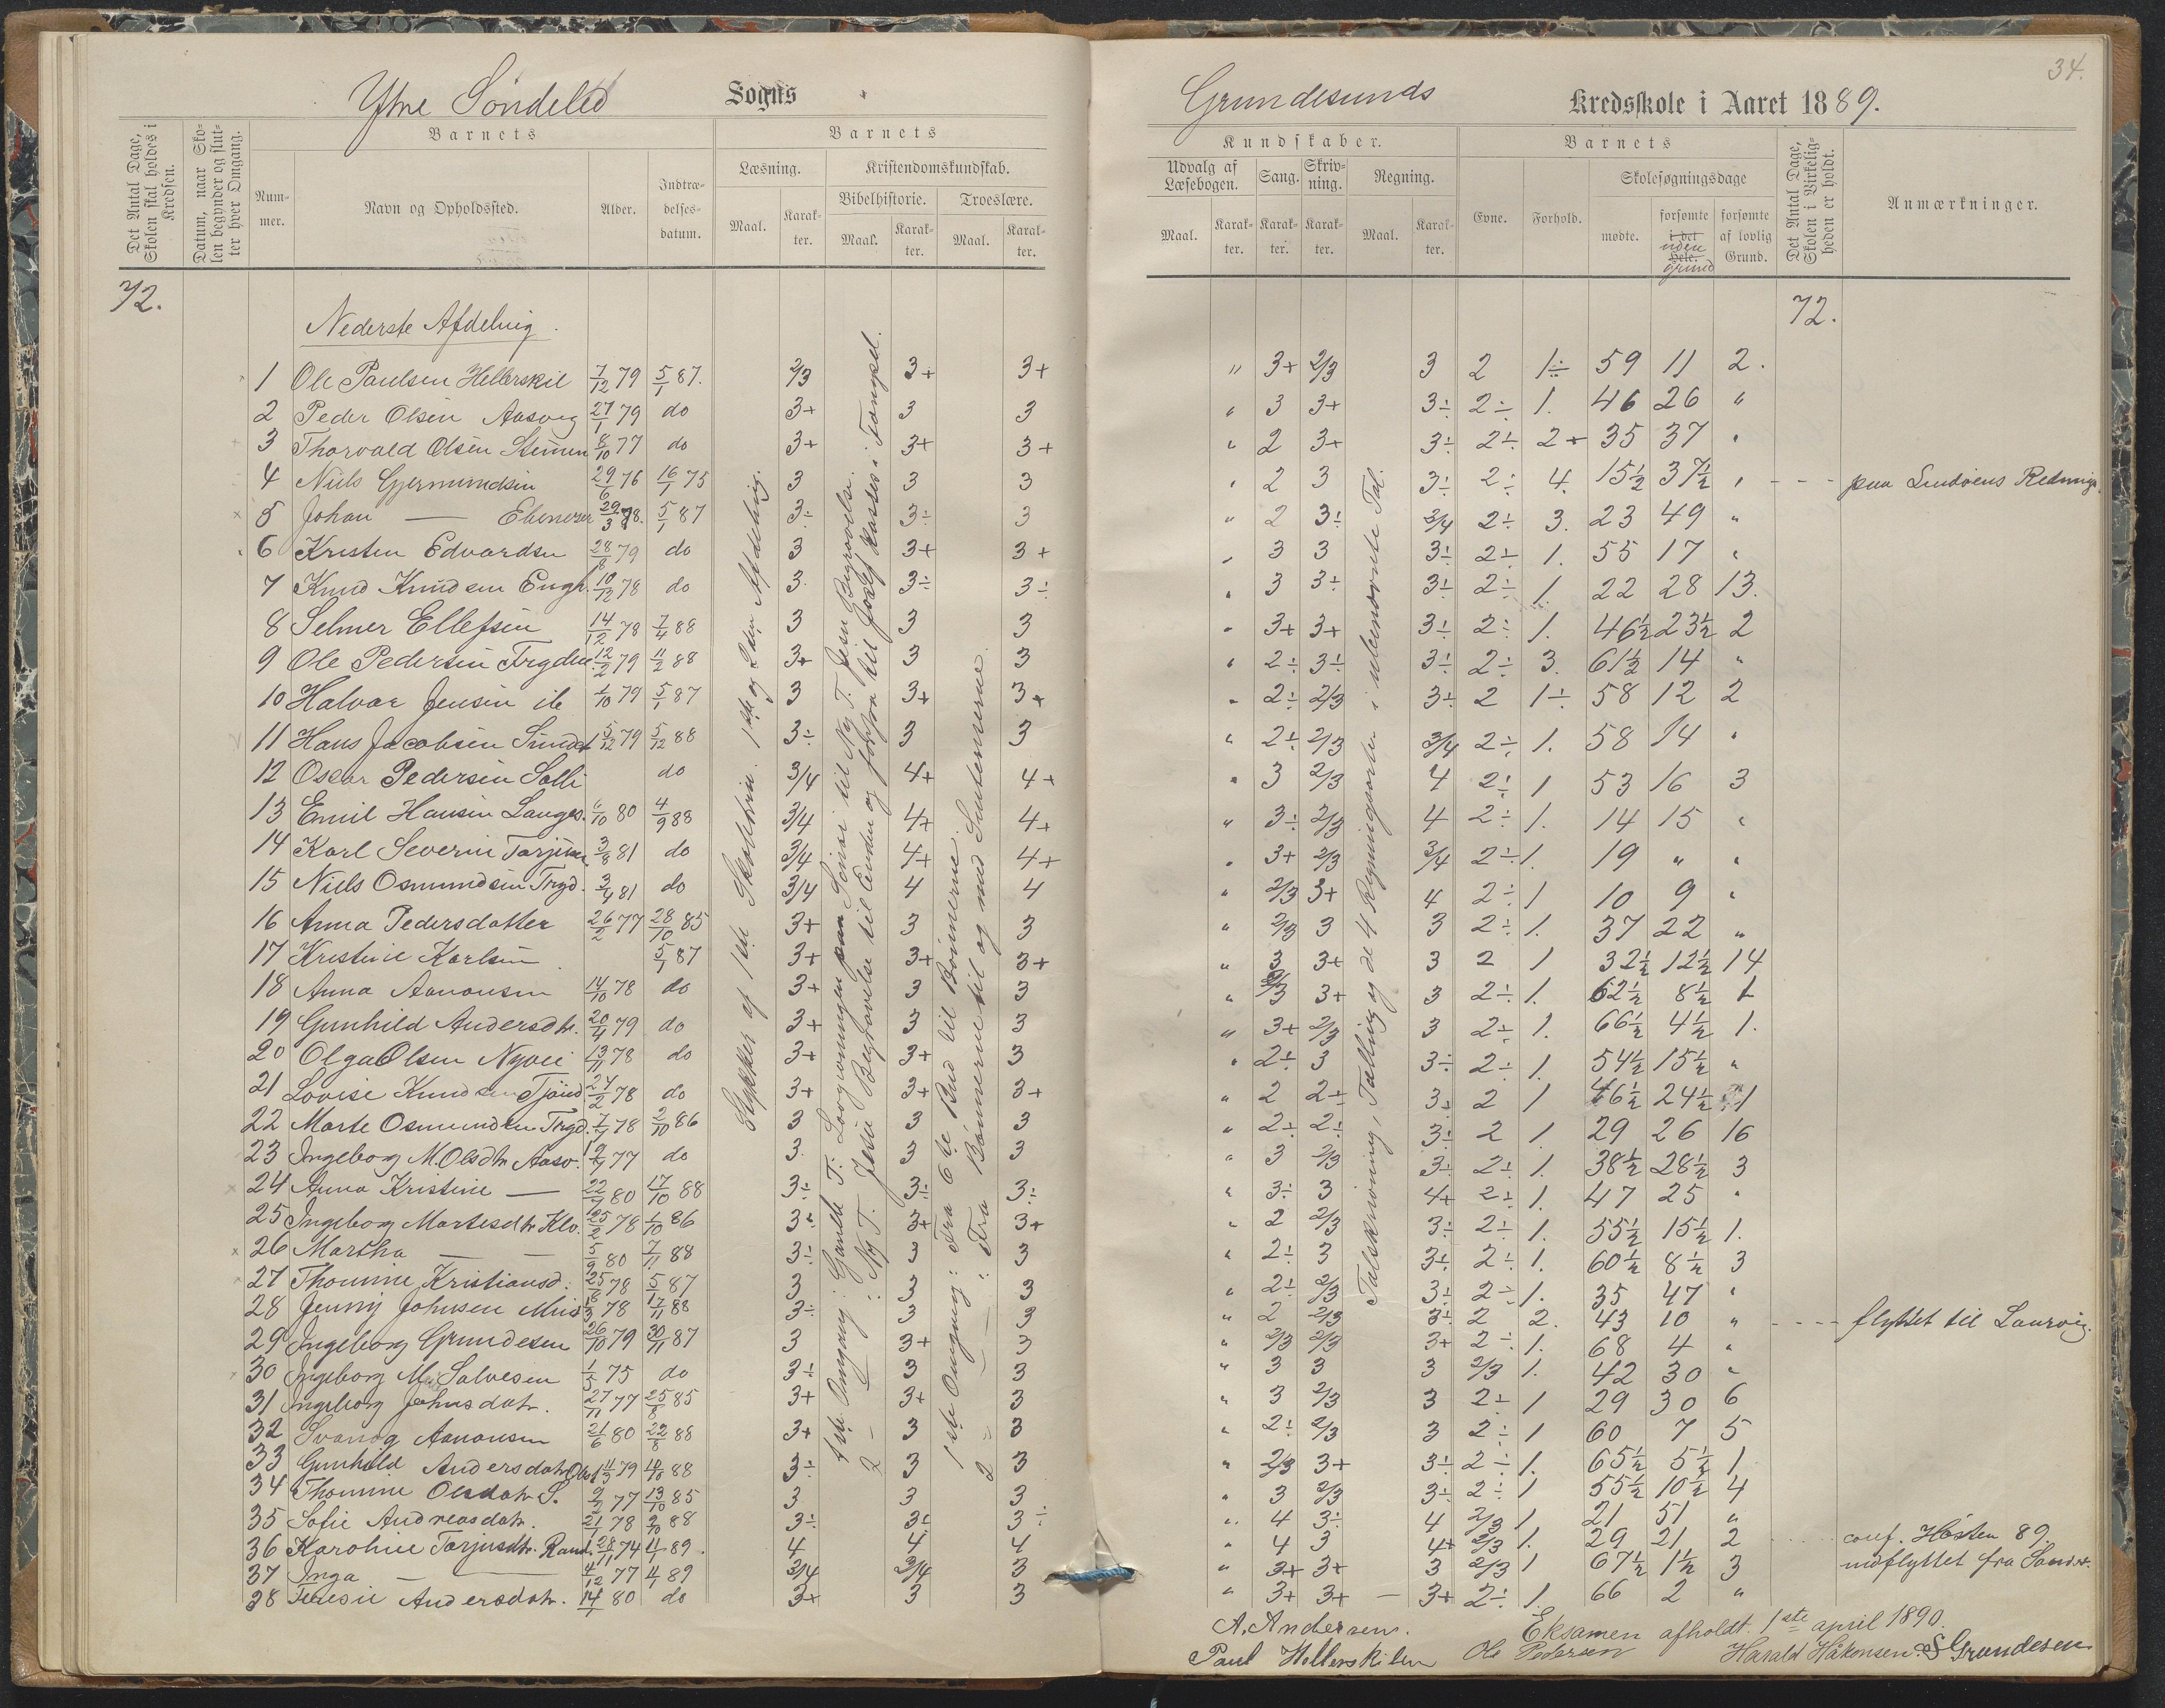 Ytre Søndeled Sogns
Grundesunds Kredsskole i Aaret 1889.
34.
Det Antal Dage, Skolen skal holdes i Kredsen.
Datum, naar Skolen begynder og slutter hver Omgang.
Barnets
Nummer.
Navn og Opholdssted.
Alder.
Indtrædelsesdatum.
Barnets
Læsning.
Maal.
Karakter.
Kristendomskundskab.
Bibelhistorie.
Maal.
Karakter.
Troeslære.
Maal.
Karakter.
Kundskaber.
Udvalg af Læsebogen.
Maal.
Karakter.
Sang.
Karakter.
Skrivning.
Karakter.
Regning.
Maal.
Karakter.
Barnets
Evne.
Forhold.
Skolesøgningsdage
mødte.
forsømte i det Hele. uden grund
forsømte af lovlig Grund.
Det Antal Dage, Skolen i Virkeligheden er holdt.
Anmærkninger.
72.
72.
Nederste Afdeling.
1 Ole Paulsen Hellerskil 7/12 79 5/1 87. 2/3 3+ 3+ " 3+ 2/3 3 2 1÷ 59 11 2.
2 Peder Olsen Aasvig 27/1 79 do 3+ 3 3 " 3 3+ 3÷ 2÷ 1. 46 26 "
3 Thorvald Olsen 8/10 77 do 3+ 3+ 3+ " 2 3+ 3÷ 2÷ 2+ 35 37 "
4 Niels Gjermundsen 29/6 76 16/1 75 3 3 3 " 2 3 3÷ 2÷ 4. 15½ 37½ " paa Lindøens Rednings.
5 Johan — Ebeneser 29/3 78. 5/1 87 3÷ 3÷ 3 " 2 3÷ 3/4 2÷ 3. 23 49 "
6 Kristen Edvardsen 28/8 79 do 3 3+ 3+ " 3 3 3÷ 2÷ 1. 55 17 "
7 Knud Knudsen 10/12 78 do 3. 3÷ 3÷ " 3 3÷ 3÷ 2÷ 1. 22 28 13.
8 Selmer Ellefsen 14/12 78 7/4 88 3 3 3 " 3+ 3+ 3÷ 2÷ 1. 46½ 23½ 2
9 Ole Pedersen 12/2 79 11/2 88 3+ 3 3 " 2÷ 3÷ 3÷ 2÷ 3. 61½ 14 "
10 Halvor Jensen ib 1/10 79 5/1 87 3 3+ 3+ " 2÷ 2/3 3÷ 2 1÷ 58 12 2
11 Hans Jacobsen 5/12 79 5/12 88 3÷ 3 3 " 2÷ 2/3 3/4 2÷ 1. 58 14 "
12 Oscar Pedersen Solli do 3/4 4+ 4+ " 3 2/3 4 2÷ 1 53 16 3
13 Emil Hansen Langes. 6/10 80 4/9 88 3/4 4+ 4+ " 3÷ 2/3 4 2÷ 1. 14 15 "
14 Karl Severin Tarjusen 3/8 81 do 3/4 4+ 4+ " 3+ 2/3 3/4 2÷ 1. 19 " "
15 Niels Osmundsen Trgd. 3/4 81 do 3/4 4 4 " 2/3 3+ 4 2÷ 1 10 9 "
16 Anna Pedersdatter 26/2 77 28/10 85 3+ 3 3 " 2/3 3 3 2÷ 1. 37 22 "
17 Kristine Karlsen 5/1 87 3+ 3+ 3+ " 3 3+ 3 2 1 32½ 12½ 14
18 Anna Aanonsen 14/10 78 do 3+ 3 3 " 2/3 3+ 3 2÷ 1. 62½ 8½ 1
19 Gunhild Andersdtr. 20/4 79 do 3+ 3 3 " 3+ 2/3 3 2÷ 1. 66½ 4½ 1.
20 Olga Olsen 13/11 78 do 3+ 3+ 3 " 2÷ 3 3÷ 2÷ 1. 54½ 15½ "
21 Lovise Knudsen 27/2 78 do 3+ 3+ 3+ " 2 2÷ 3÷ 2 1 46½ 24½ 1
22 Marte Osmundsen Trgd. 7/7 78 2/10 86 3 3 3 " 2÷ 2÷ 3÷ 2 1. 29 26 16
23 Ingeborg M Olsdtr Aasv. 77 do 3. 3 3 " 3 2/3 3÷ 2÷ 1. 38½ 28½ 3
24 Anna Kristine — 80 17/10 88 3÷ 3÷ 3÷ " 3÷ 3 4+ 2÷ 1. 47 25 "
25 Ingeborg Martesdtr Klo. 25/2 78 1/10 86 3÷ 3+ 3+ " 2 2/3 3÷ 2÷ 1. 55½ 15½ 1.
26 Martha — — 5/9 80 7/11 88 3÷ 3 3 " 2÷ 3 3÷ 2÷ 1. 60½ 8½ 3
27 Thomine Kristiansd: 25/8 78 5/1 87 3 3 3 " 2÷ 2/3 3÷ 2÷ 1. 35 47 "
28 Jenny Johnsen 78 17/11 88 3÷ 3 3 " 2 2/3 3÷ 2 2. 43 10 " flyttet til Laurvig.
29 Ingeborg Grundesen 26/10 79 30/11 87 3 3+ 3 " 2/3 2/3 3+ 2÷ 1. 68 4 "
30 Ingeborg M Salvesen 1/5 75 do 3÷ 3 3 " 3 3 3 2/3 1. 42 30 "
31 Ingeborg Johnsdatr. 27/11 77 25/8 85 3+ 3+ 3 " 3 2/3 3 2÷ 1 29 30 6
32 Svanog Aanonsen 21/6 80 22/8 88 3+ 3 3 " 2÷ 2/3 3 2÷ 1 60 7 5
33 Gunhild Andersdatr 79 88 3÷ 3 3 " 2/3 3+ 3÷ 2÷ 1. 65½ 5½ 1
34 Thomine Olsdatr S. 9/2 77 13/10 85 3 3 3 " 3 2/3 3÷ 2÷ 1 55½ 10½ 4
35 Sofie Andreasdatr. 21/1 78 2/10 88 3÷ 3÷ 3÷ " 4 3÷ 4 2/3 1 21 51 "
36 Karoline Tarjusdtr. Rand. 28/11 74 4/1 89. 4 4 4 " 4 3 4+ 2/3 1. 29 21 2 conf. Høsten 89.
37 Inga — 4/12 77 4/1 89 3/4 3/4 3 " 3+ 3+ 3 2/3 1 67½ 1½ 3 indflyttet fra
38 Andersdatr. 14/1 80 do 3+ 3 3 " 3+ 3+ — 3+ 2÷ 1. 66 2 "
Stykker af 1ste Skoletrin. 1ste og 2den Afdeling.
1ste Omgang: Gamle T: Lovgivningen paa Sinai til Ny T. Jesu Begravelse.
2 — : Ny T. Jesu Begravelse til Enden og forfra til Josef kastes i Fængsel.
1ste Omgang: Fra 6te Bud til Bønnerne.
2 — : Fra Bønnerne til og med Sentenserne.
Talskrivning, Tælling og de 4 Regningsarter i ubenævnte Tal.
Eksamen afholdt 1ste april 1890.
A. Andersen.
Paul Hellerskilen Ole Pedersen Harald Håkonsen S Grundesen